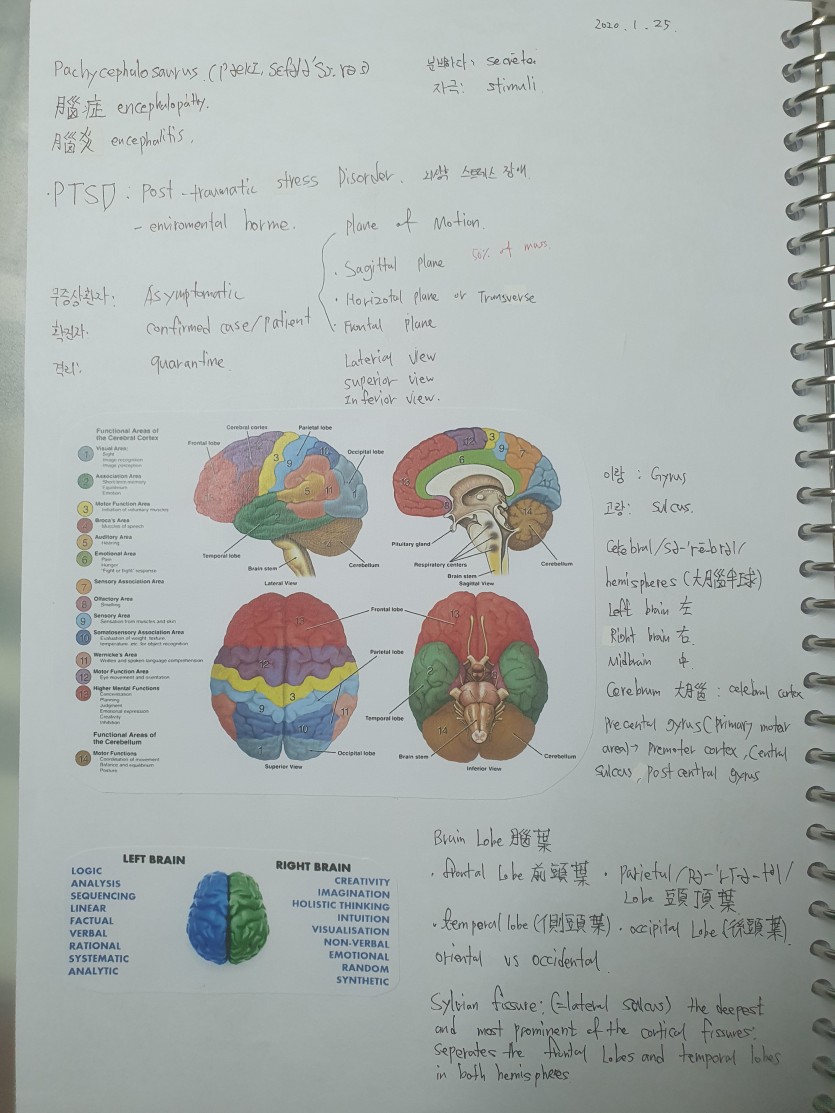 2020. 1. 25.
Pachycephalosaurus.
분비하다: secrete
자극: stimuli
腦症 encephalopathy.
腦炎 encephalitis.
· PTSD: Post-traumatic stress Disorder. 스트레스 장애
- enviromental
plane of Motion.
· Sagittal plane 50% of mass
· Horizotal plane or Transverse
· Frontal plane
무증상환자: Asymptomatic
확진자. confirmed case/patient
격리: quarantine
Laterial view
superior view
Inferior view.
Functional Areas of
the Cerebral Cortex
1 Visual Area:
Sight
Image recognition
Image perception
2 Association Area
Short-term memory
Equilibrium
Emotion
3 Motor Function Area
Initiation of voluntary muscles
4 Broca's Area
Muscles of speech
5 Auditory Area
Hearing
6 Emotional Area
Pain
Hunger
"Fight or flight" response
7 Sensory Association Area
8 Olfactory Area
Smelling
9 Sensory Area
Sensation from muscles and skin
10 Somatosensory Association Area
Evaluation of weight, texture,
temperature, etc. for object recognition
11 Wernicke's Area
Written and spoken language comprehension
12 Motor Function Area
Eye movement and orientation
13 Higher Mental Functions
Concentration
Planning
Judgment
Emotional expression
Creativity
Inhibition
Functional Areas of
the Cerebellum
14 Motor Functions
Coordination of movement
Balance and equilibrium
Posture
Cerebral cortex
Parietal lobe
Frontal lobe
Occipital lobe
Temporal lobe
Cerebellum
Brain stem
Lateral View
Pituitary gland
Respiratory centers
Brain stem
Cerebellum
Sagittal View
Frontal lobe
Parietal lobe
Temporal lobe
Occipital lobe
Superior View
Brain stem
Cerebellum
Inferior View
이랑: Gyrus
고랑: Sulcus.
Cerebral/sə-'rē-brəl/
hemispheres (大腦半球)
Left brain 左
Right brain 右
Midbrain 中
Cerebrum 大腦: celebral cortex
Precental gyrus (primary motor
area) → premoter cortex, Central
Sulcus, post central gyrus
LEFT BRAIN
LOGIC
ANALYSIS
SEQUENCING
LINEAR
FACTUAL
VERBAL
RATIONAL
SYSTEMATIC
ANALYTIC
RIGHT BRAIN
CREATIVITY
IMAGINATION
HOLISTIC THINKING
INTUITION
VISUALISATION
NON-VERBAL
EMOTIONAL
RANDOM
SYNTHETIC
Brain Lobe 腦葉
· frontal Lobe 前頭葉 · parietul
Lobe 頭頂葉
· temporal lobe (側頭葉) · occipital Lobe (後頭葉)
oriental vs occidental
Sylvian fissure: (=lateral sulcus) the deepest
and most prominent of the cortical fissures:
seperates the frontal Lobes and temporal lobes
in both hemispheres